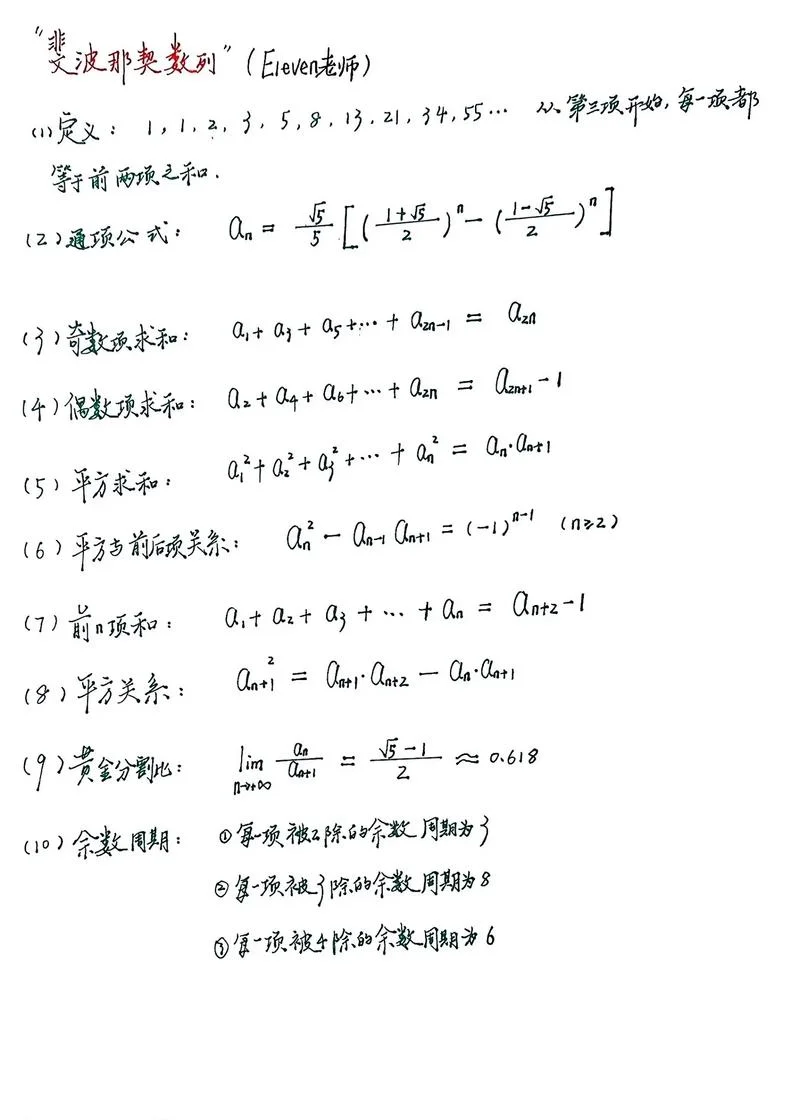 “斐波那契数列”(Eleven老师)
(1)定义: 1, 1, 2, 3, 5, 8, 13, 21, 34, 55… 从第三项开始, 每一项都
等于前两项之和.
(2)通项公式: aₙ = √5/5 [((1+√5)/2)ⁿ − ((1−√5)/2)ⁿ]
(3)奇数项求和: a₁ + a₃ + a₅ + … + a₂ₙ₋₁ = a₂ₙ
(4)偶数项求和: a₂ + a₄ + a₆ + … + a₂ₙ = a₂ₙ₊₁ − 1
(5)平方求和: a₁² + a₂² + a₃² + … + aₙ² = aₙ·aₙ₊₁
(6)平方与前后项关系: aₙ² − aₙ₋₁ aₙ₊₁ = (−1)ⁿ⁻¹ (n≥2)
(7)前n项和: a₁ + a₂ + a₃ + … + aₙ = aₙ₊₂ − 1
(8)平方关系: aₙ₊₁² = aₙ₊₁·aₙ₊₂ − aₙ·aₙ₊₁
(9)黄金分割比: lim n→+∞ aₙ/aₙ₊₁ = (√5−1)/2 ≈ 0.618
(10)余数周期: ①每一项被2除的余数周期为3
②每一项被3除的余数周期为8
③每一项被4除的余数周期为6